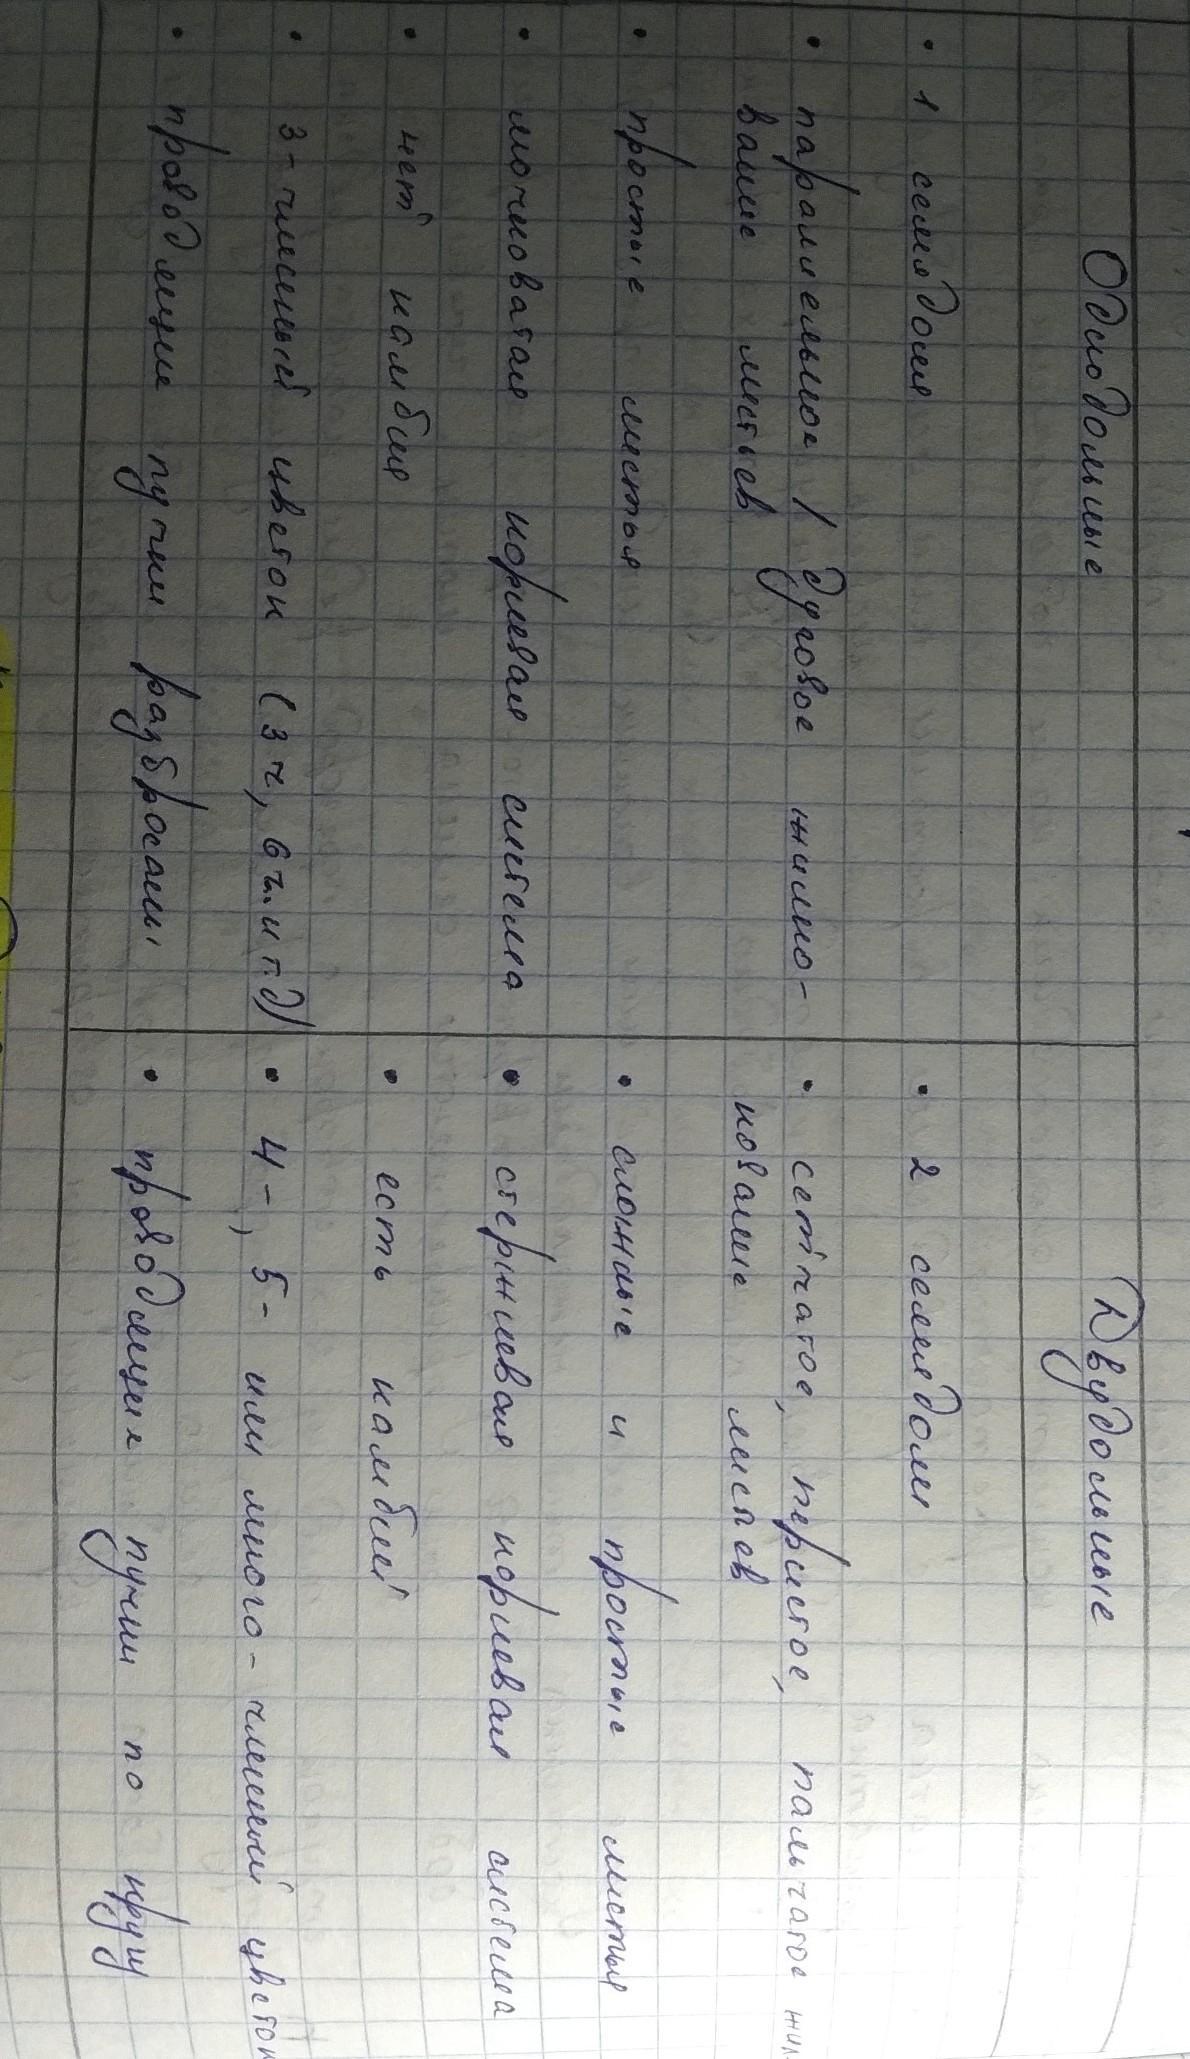 Однодольные
Двудольные
• 1 семядоля
• параллельное / дуговое жилко-
вание листьев
• простые листья
• мочковатая корневая система
• нет камбия
• 3-членный цветок (3ч, 6ч. и т д)
• проводящие пучки разбросаны
• 2 семядоли
• сетчатое, перистое, пальчатое жил
кование листьев
• сложные и простые листья
• стержневая корневая система
• есть камбий
• 4-, 5- или много-членный цветок
• проводящие пучки по кругу